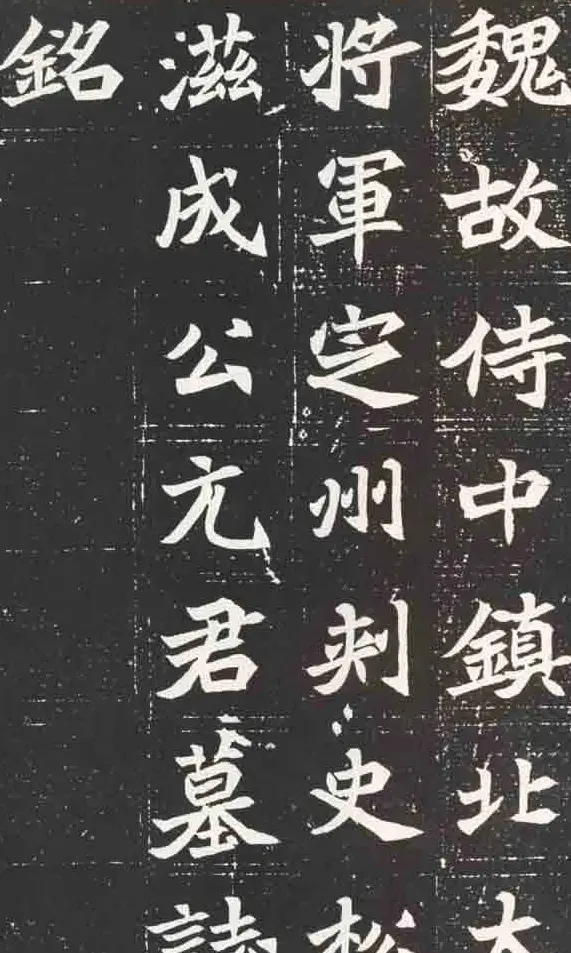 魏故侍中鎮北大
將軍定州刾史松
滋成公元君墓誌
銘